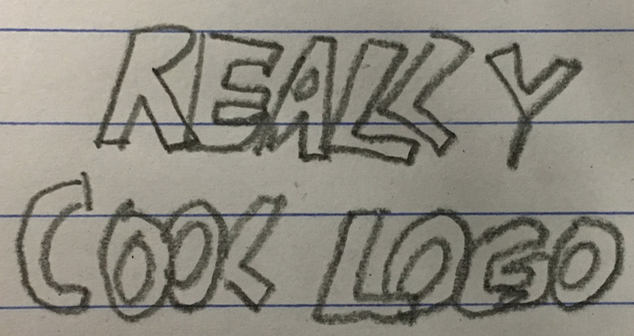 REALLY
COOL LOGO